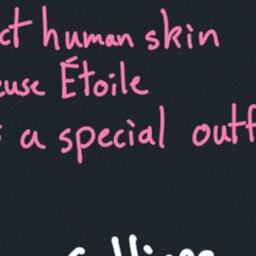 ct human skin
euse Étoile
s a special outf